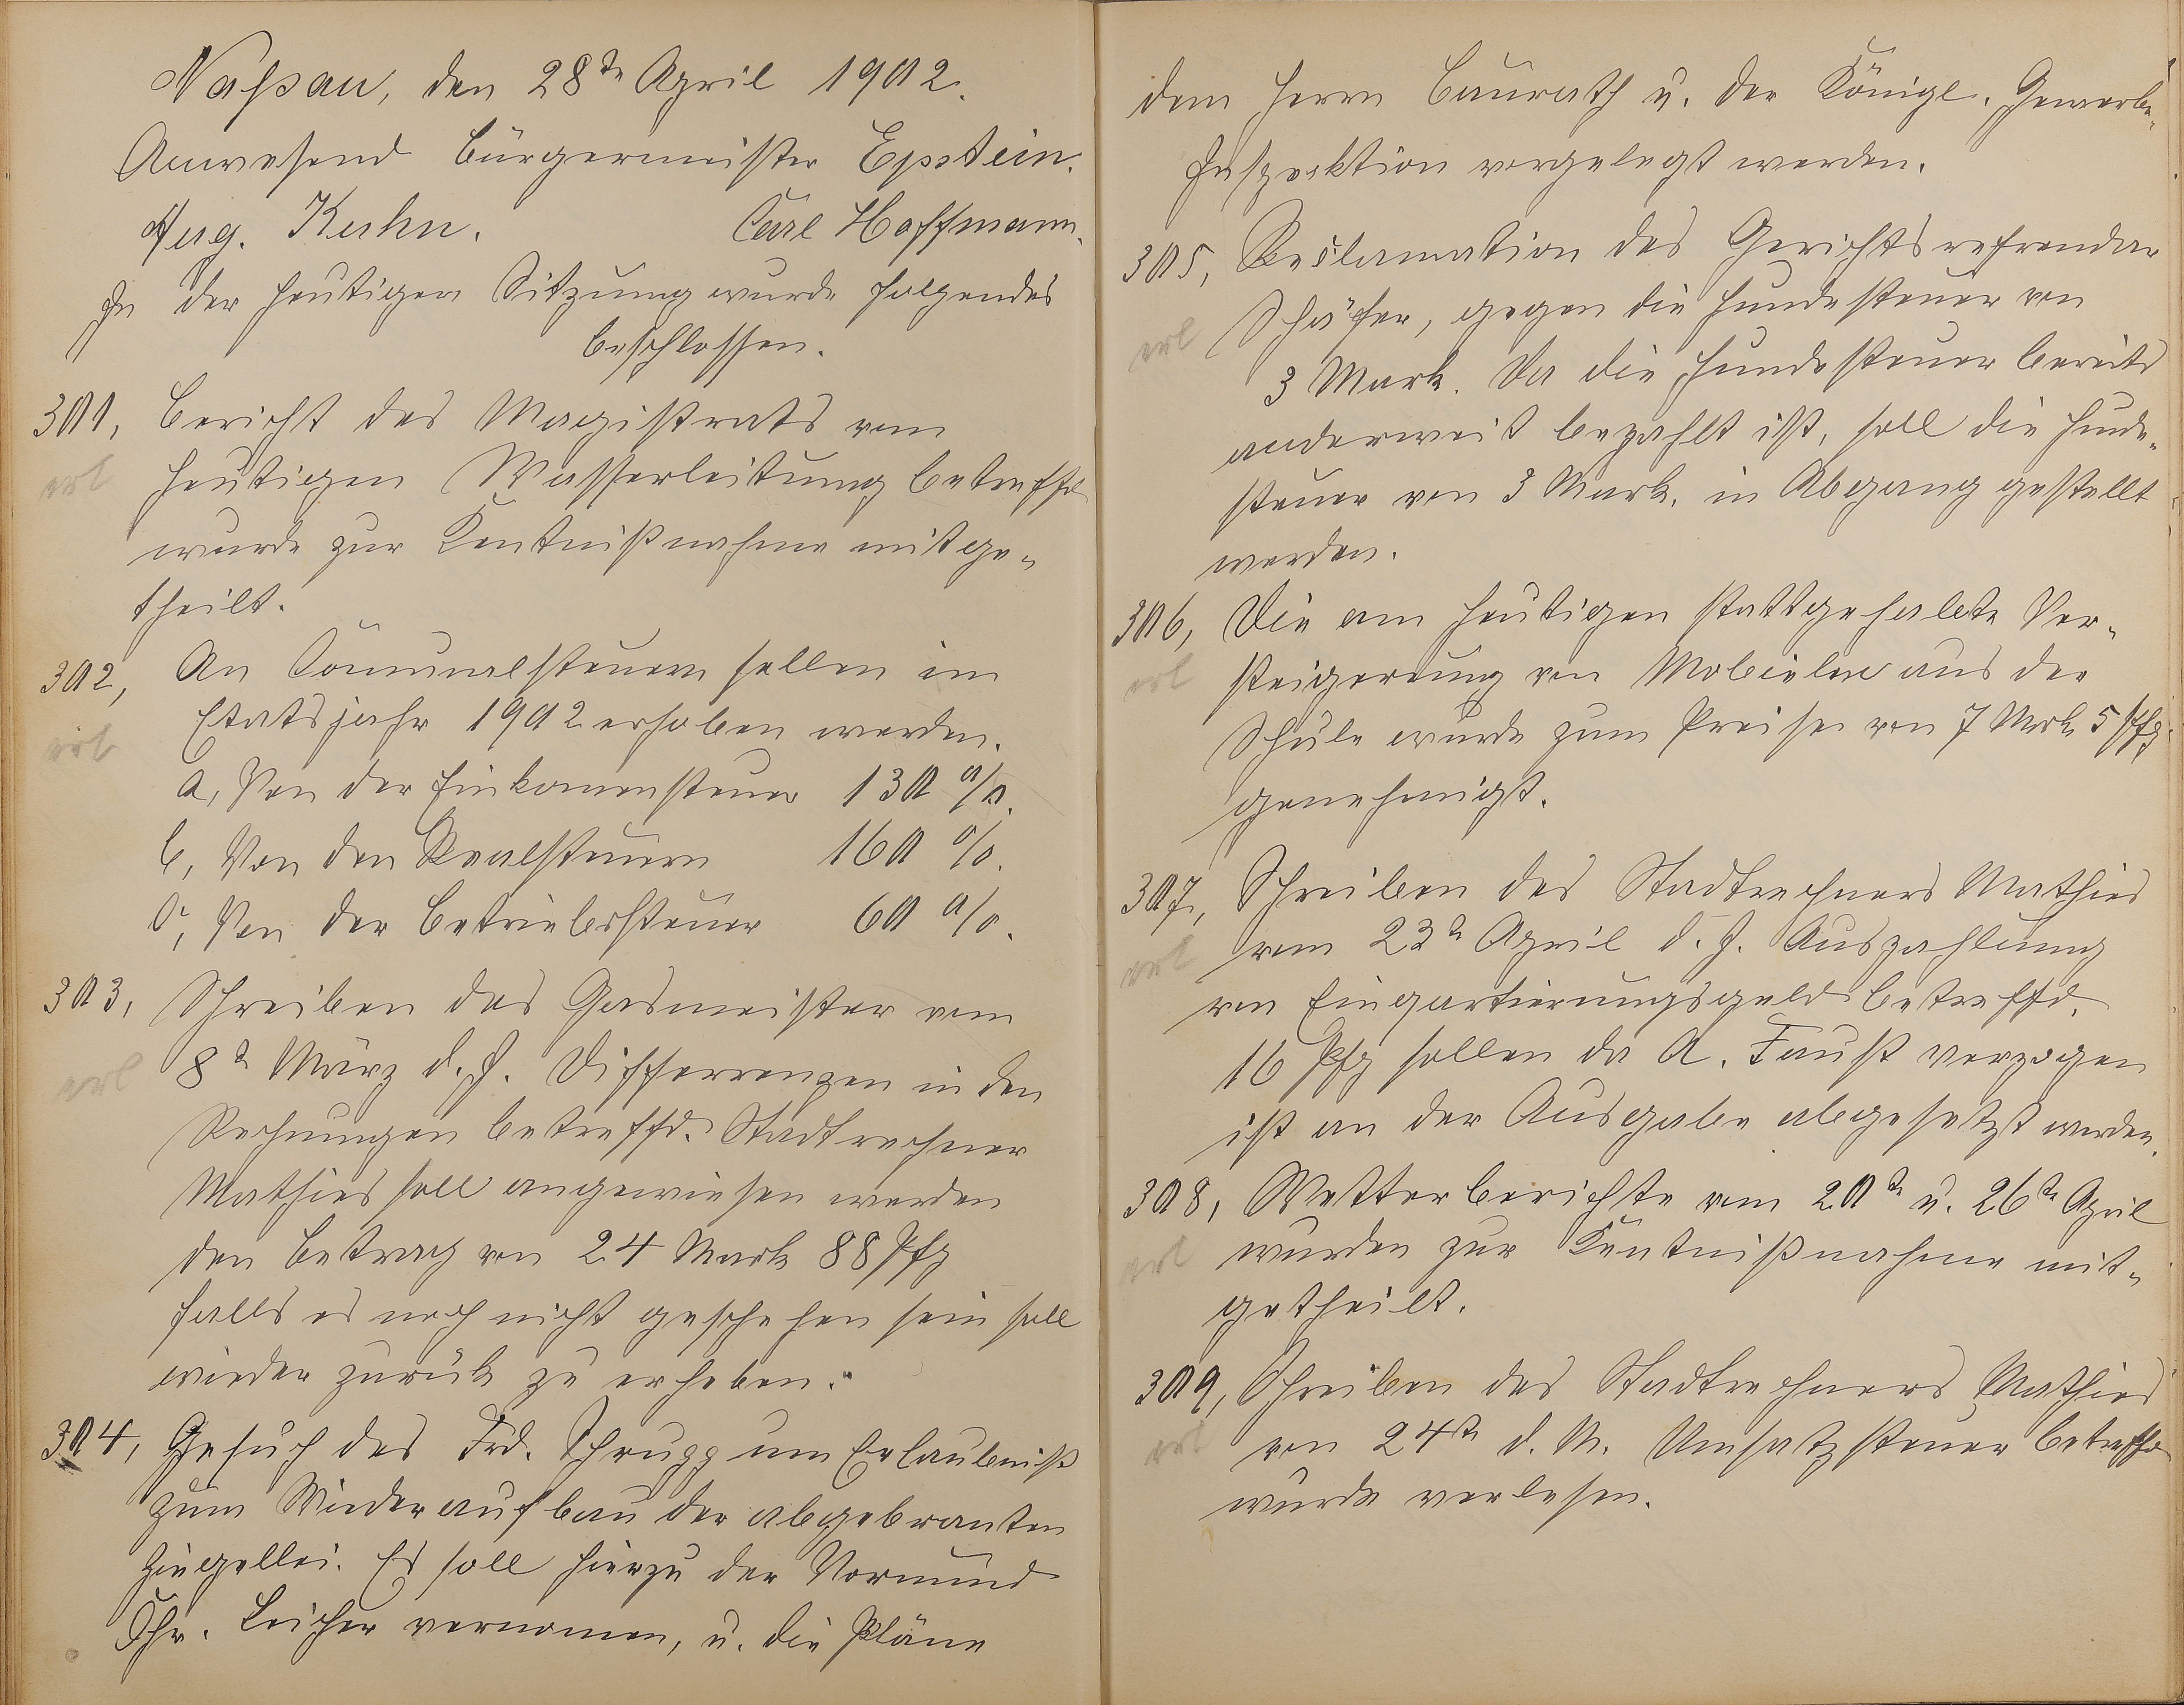 Naßau, den 28te April 1902.
Anwesend Bürgermeister Epstein.
Aug. Kuhn. Carl Hoffmann.
In der heutigen Sitzung wurde folgendes
beschlossen.
301, Bericht des Magistrats vom
erl heutigen Wasserleitung betreffd
wurde zur Kentnißnahme mitge-
theilt.
302, An Com̄unalsteuern sollen im
erl Etatsjahr 1902 erhoben werden.
a, Von der Einkomensteuer 130 %.
b, Von den Realsteuern 160 %.
c, Von der Betriebssteuer 60 %.
303, Schreiben des Gasmeister vom
erl 8t März d. J. Differrenzen in den
Rechnungen betreffd. Stadtrechner
Mathies soll angewiesen werden
den Betrag von 24 Mark 88 Pfg
falls es noch nicht geschehen sein soll
wieder zurük zu erheben.
304, Gesuch des Frd. Schrupp um Erlaubniß
zum Wiederaufbau der abgebranten
Ziegellei. Es soll hierzu der Vormund
Chr. Leicher vernomen, u. die Pläne
dem Herrn Baurath u. der Königl. Gewerbe-
Inspecktion vorgelegt werden.
305, Reclamation des Gerichtsrefrendar
erl Schäfer, gegen die Hundesteuer von
3 Mark. Da die Hundesteuer bereits
anderweit bezahlt ist, soll die Hunde-
steuer von 3 Mark. in Abgang gestellt
werden.
306, Die am heutigen stattgehabte Ver-
erl steigerung von Mobielen aus der
Schule wurde zum Preise von 7 Mrk 5 Pfg.
genehmigt.
307, Schreiben des Stadtrechners Mathies
erl vom 23t April d. J. Auszahlung
von Einqartierungsgeld betreffd.
16 Pfg sollen da A. Faust verzogen
ist an der Ausgabe abgesetzt werden.
308, Wetterberichte vom 20te u. 26te April
erl wurden zur Kentnißnahme mit-
getheilt.
309, Schreiben des Stadtrechners Mathies
erl von 24te d. M. Umsatzsteuer betreffd
wurde verlesen.